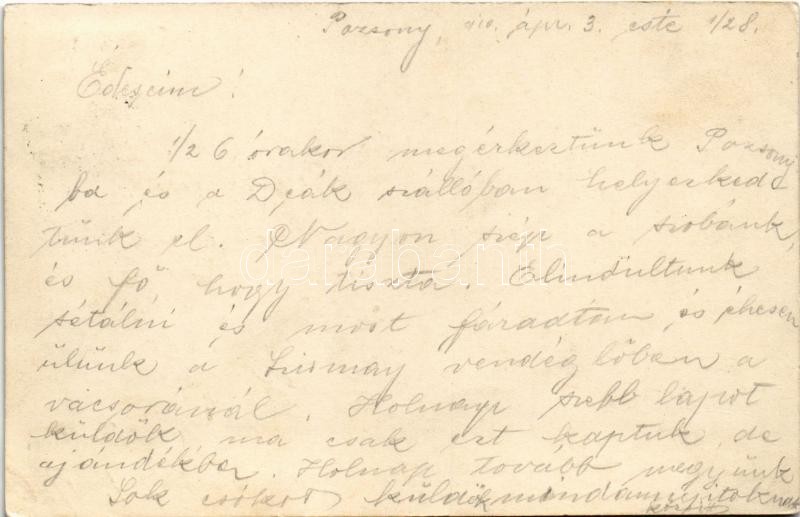 Pozsony, 910. ápr. 3. este 1/2 8.
Édeseim!
1/2 6 órakor megérkeztünk Pozsony
ba és a Deák szállóban helyezked
tünk el. Nagyon szép a szobánk,
és fő hogy tiszta. Elindultunk
sétálni és most fáradtan, és éhesen
ülünk a vendéglőben a
vacsoránál. Holnap szebb lapot
küldök ma csak ezt kaptuk, de
ajándékba. Holnap tovább megyünk
Sok csókot küldök mindannyitoknak
darabanth